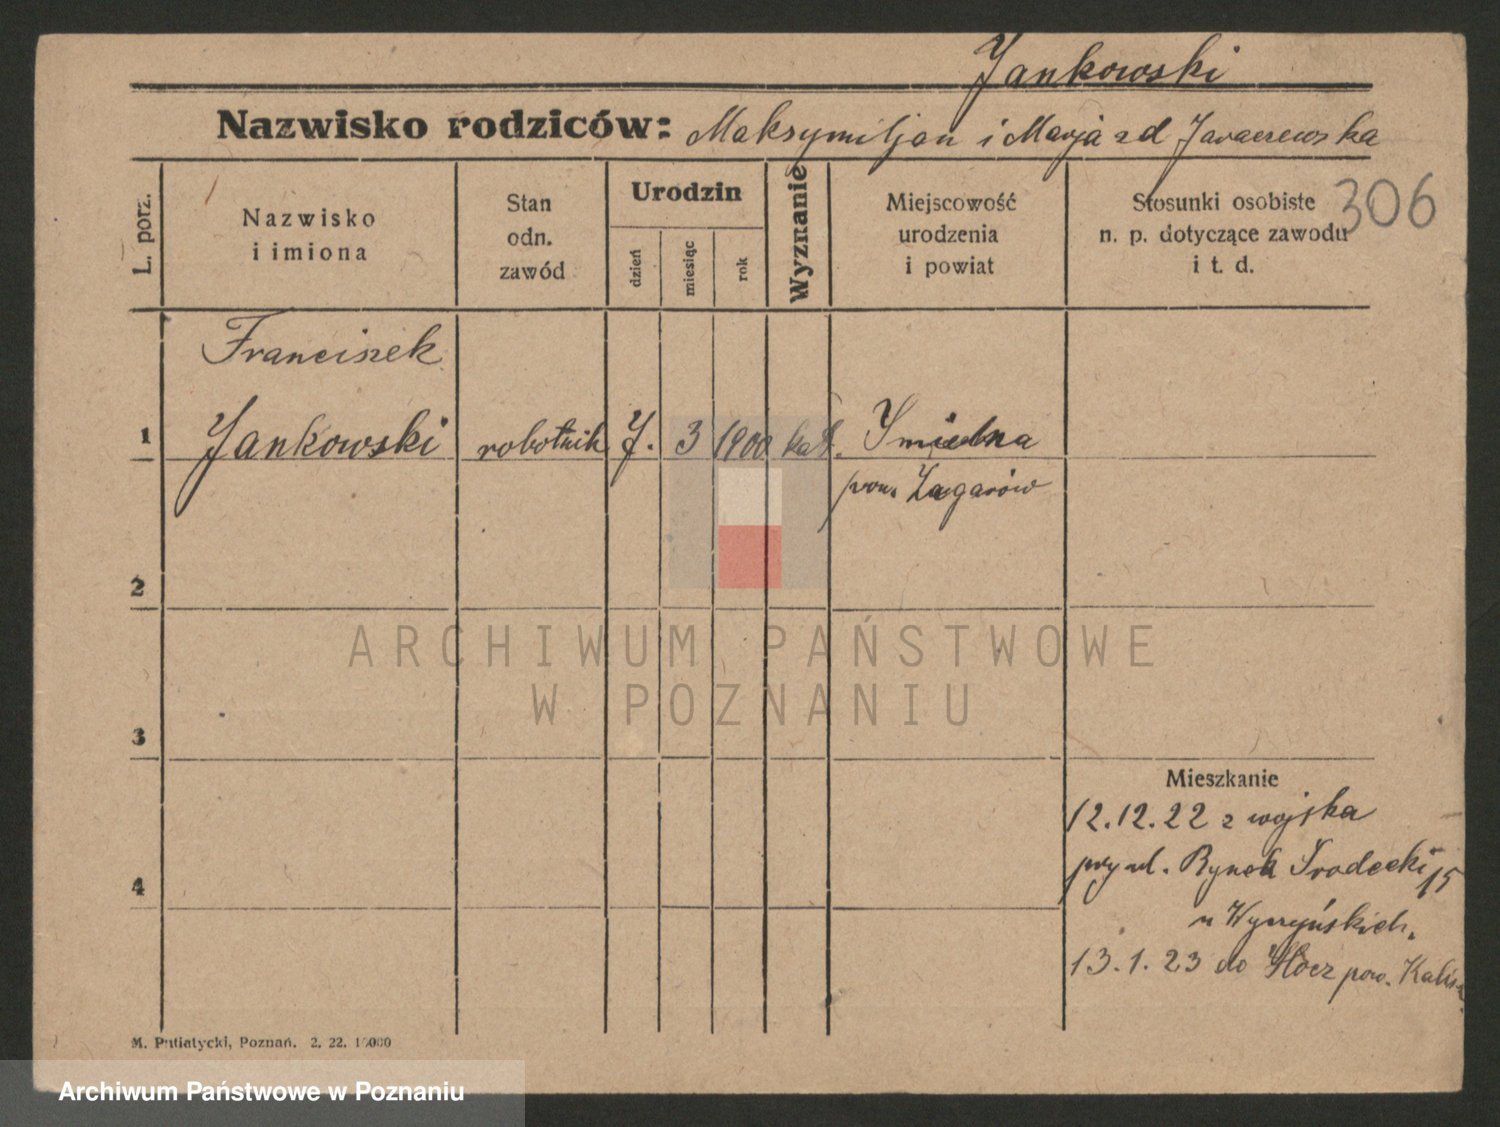 Jankowski
Nazwisko rodziców: Maksymiljan i Marja zd Jaraczewska
L. porz.
Nazwisko
i imiona
Stan
odn.
zawód
Urodzin
dzień
miesiąc
rok
Wyznanie
Miejscowość
urodzenia
i powiat
Stosunki osobiste
n. p. dotyczące zawodu
i t. d.
306
Franciszek
1 Jankowski robotnik 7. 3 1900 kat.
pow. Zagorów
2
3
4
ARCHIWUM PAŃSTWOWE
W POZNANIU
Mieszkanie
12.12.22 z wojska
przy ul. Rynek Srodecki 15
u
13.1.23 do pow. Kalisz
M. Putiatycki, Poznań. 2. 22. 10000
Archiwum Państwowe w Poznaniu